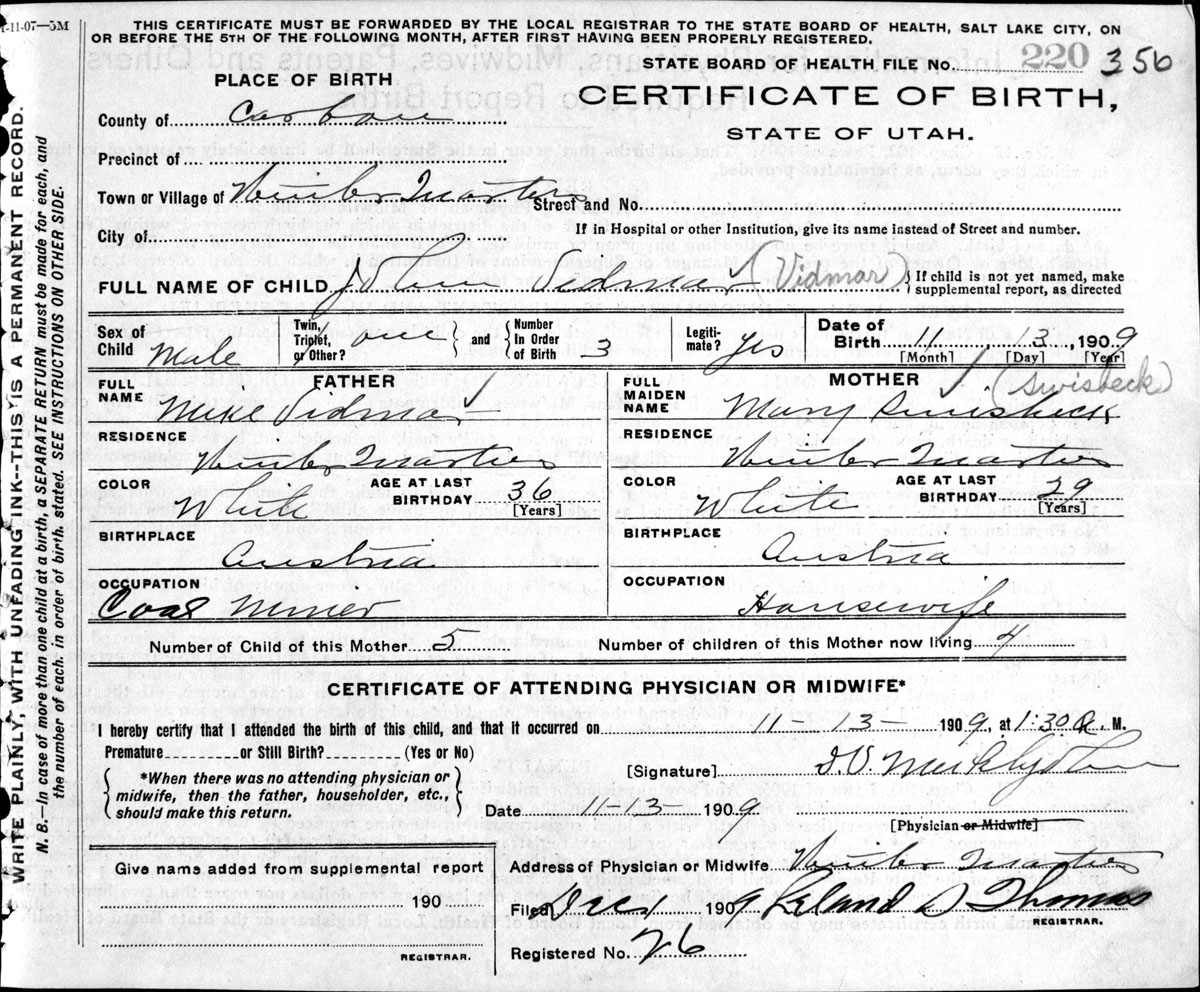 1-11-07—5M
THIS CERTIFICATE MUST BE FORWARDED BY THE LOCAL REGISTRAR TO THE STATE BOARD OF HEALTH, SALT LAKE CITY, ON
OR BEFORE THE 5TH OF THE FOLLOWING MONTH, AFTER FIRST HAVING BEEN PROPERLY REGISTERED.
STATE BOARD OF HEALTH FILE No. 220 356
PLACE OF BIRTH
CERTIFICATE OF BIRTH,
STATE OF UTAH.
County of Carbon
Precinct of
Town or Village of Winter Quarters Street and No.
City of If in Hospital or other Institution, give its name instead of Street and number.
FULL NAME OF CHILD John Vidmar (Vidmar) } If child is not yet named, make
supplemental report, as directed
Sex of Child Male Twin, Triplet, or Other? one } and { Number In Order of Birth 3 Legiti-mate? yes Date of Birth 11 13, 1909
[Month] [Day] [Year]
FULL NAME FATHER Mike Vidmar
FULL MAIDEN NAME MOTHER Mary (Swisbeck)
RESIDENCE Winter Quarters
RESIDENCE Winter Quarters
COLOR White AGE AT LAST BIRTHDAY 36 [Years]
COLOR White AGE AT LAST BIRTHDAY 29 [Years]
BIRTHPLACE Austria
BIRTHPLACE Austria
OCCUPATION Coal Miner
OCCUPATION Housewife
Number of Child of this Mother 5 Number of children of this Mother now living 4
CERTIFICATE OF ATTENDING PHYSICIAN OR MIDWIFE*
I hereby certify that I attended the birth of this child, and that it occurred on 11-13- 1909, at 1:30 A. M.
Premature or Still Birth? (Yes or No)
{ *When there was no attending physician or midwife, then the father, householder, etc., should make this return. }
[Signature]
Date 11-13- 1909
[Physician or Midwife]
Give name added from supplemental report
190
REGISTRAR.
Address of Physician or Midwife Winter Quarters
Filed Dec 1 1909 Leland D Thomas
REGISTRAR.
Registered No. 26
WRITE PLAINLY, WITH UNFADING INK--THIS IS A PERMANENT RECORD.
N. B.—In case of more than one child at a birth, a SEPARATE RETURN must be made for each, and
the number of each, in order of birth, stated. SEE INSTRUCTIONS ON OTHER SIDE.